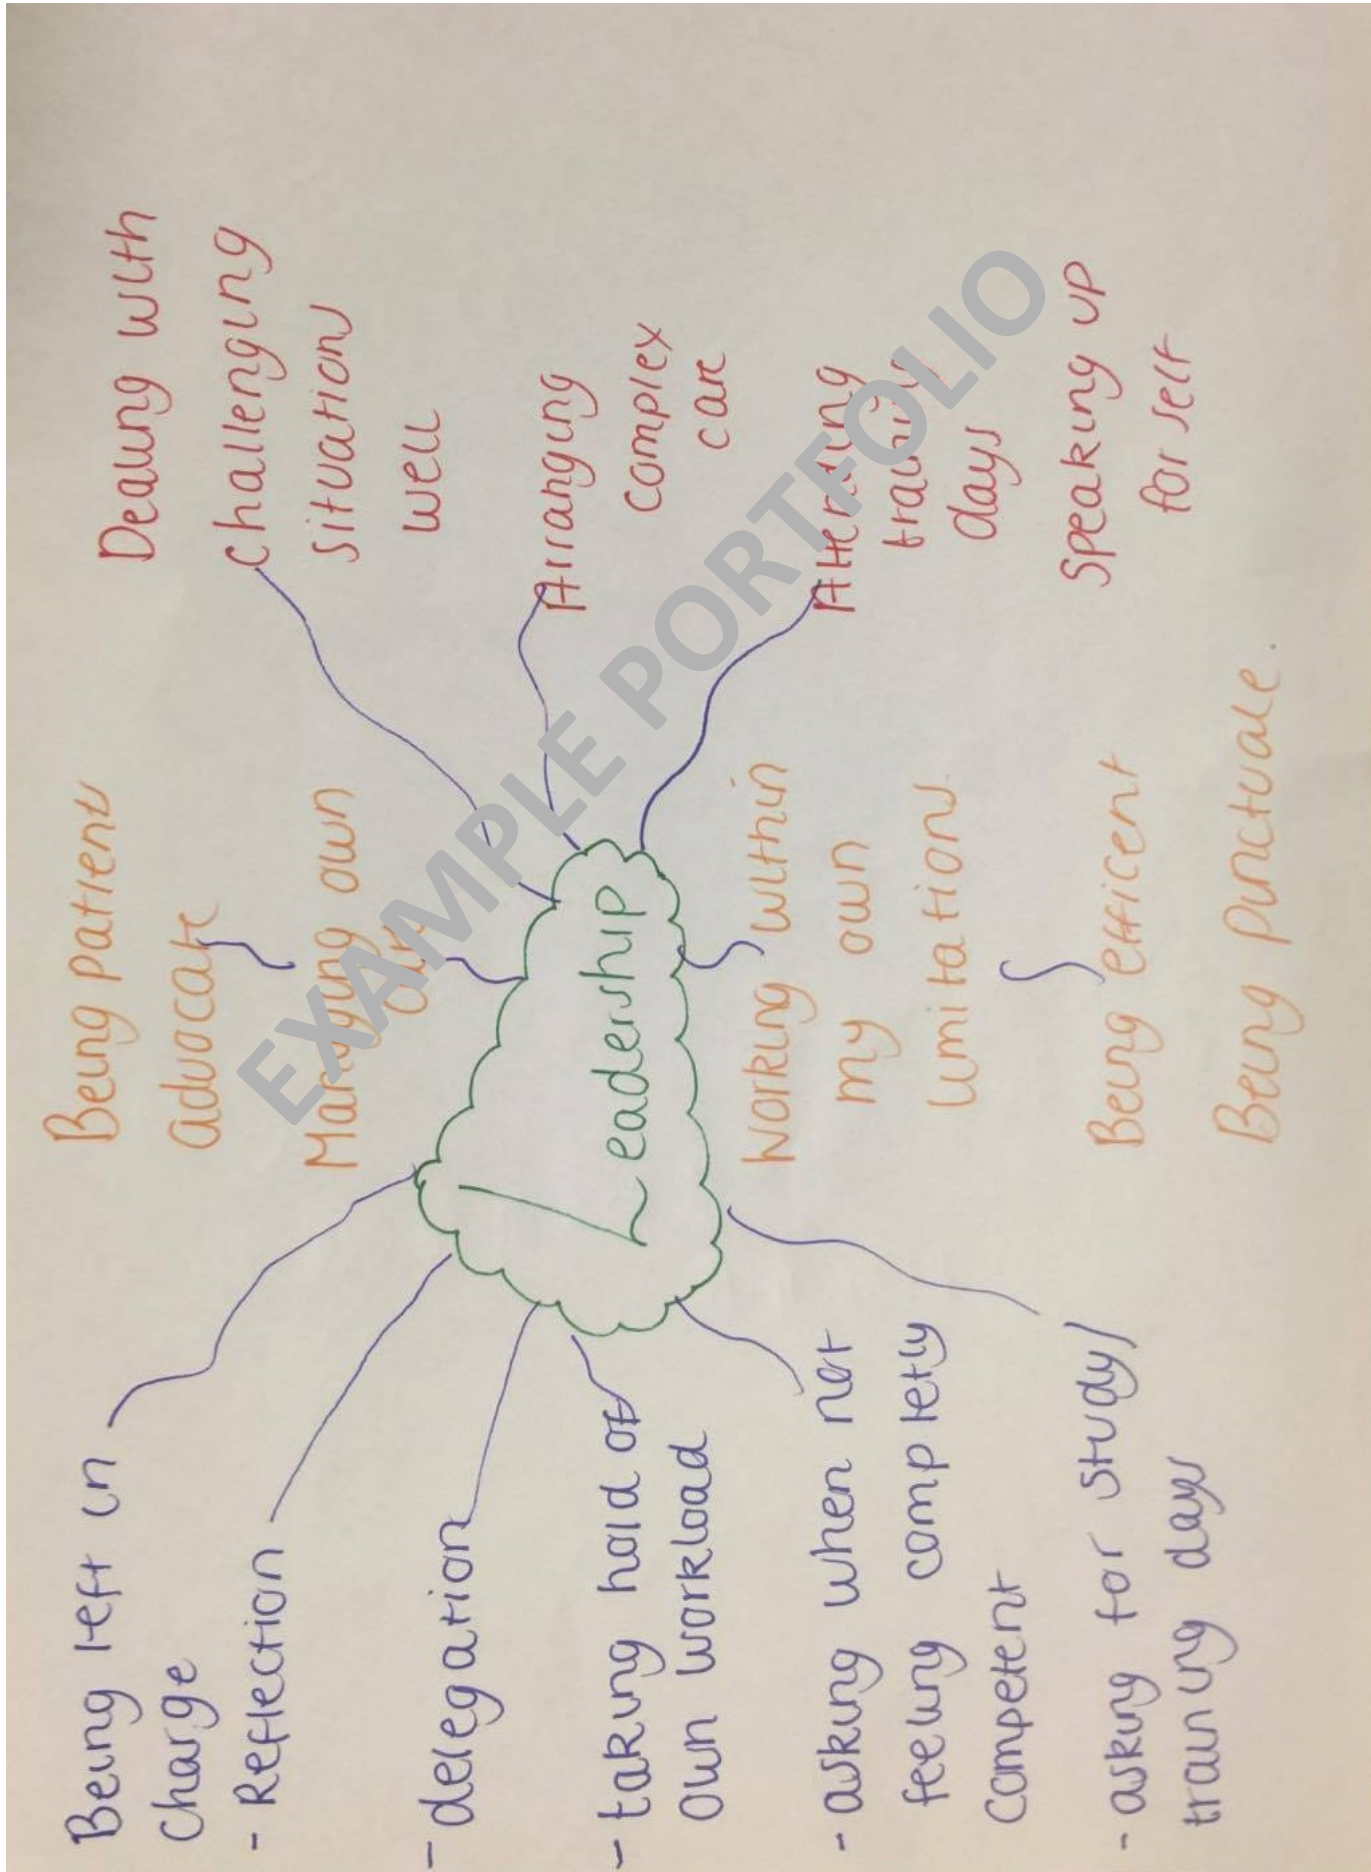 Being left in
charge
- Reflection
- delegation
- taking hold of
own workload
- asking when not
feeling completly
competent
- asking for study/
training days
Being patient
advocate
Managing own
Leadership
Working within
my own
limitations
Being efficent
Being punctuale.
Dealing with
challenging
situations
well
Arranging
complex
care
Attending
training
days
Speaking up
for self
EXAMPLE PORTFOLIO